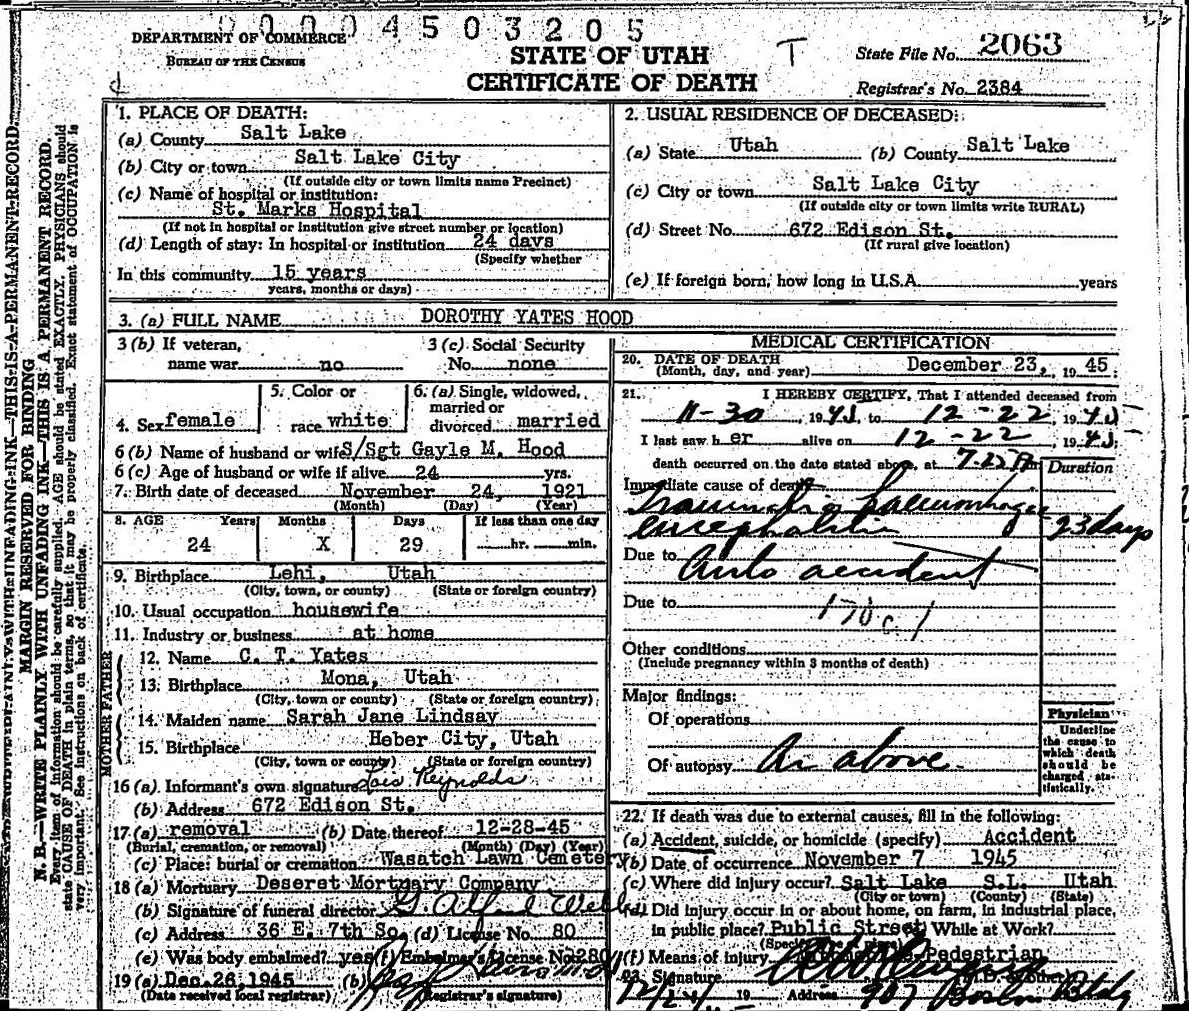 00004503205
DEPARTMENT OF COMMERCE
BUREAU OF THE CENSUS
STATE OF UTAH
CERTIFICATE OF DEATH
T
State File No. 2063
Registrar's No. 2384
N. B.—WRITE PLAINLY WITH UNFADING INK—THIS IS A PERMANENT RECORD.
MARGIN RESERVED FOR BINDING
Every item of information should be carefully supplied. AGE should be stated EXACTLY. PHYSICIANS should
state CAUSE OF DEATH in plain terms, so that it may be properly classified. Exact statement of OCCUPATION is
very important. See instructions on back of certificate.
1. PLACE OF DEATH:
(a) County Salt Lake
(b) City or town Salt Lake City
(If outside city or town limits name Precinct)
(c) Name of hospital or institution:
St. Marks Hospital
(If not in hospital or institution give street number or location)
(d) Length of stay: In hospital or institution 24 days
(Specify whether
In this community 15 years
years, months or days)
2. USUAL RESIDENCE OF DECEASED:
(a) State Utah (b) County Salt Lake
(c) City or town Salt Lake City
(If outside city or town limits write RURAL)
(d) Street No. 672 Edison St.
(If rural give location)
(e) If foreign born, how long in U.S.A. years
3. (a) FULL NAME DOROTHY YATES HOOD
3 (b) If veteran, name war no
3 (c) Social Security No. none
4. Sex female
5. Color or race white
6. (a) Single, widowed, married or divorced married
6 (b) Name of husband or wife S/Sgt Gayle M. Hood
6 (c) Age of husband or wife if alive 24 yrs.
7. Birth date of deceased November 24, 1921
(Month) (Day) (Year)
8. AGE Years Months Days If less than one day
24 X 29 hr. min.
9. Birthplace Lehi, Utah
(City, town, or county) (State or foreign country)
10. Usual occupation housewife
11. Industry or business at home
FATHER
12. Name C. T. Yates
13. Birthplace Mona, Utah
(City, town or county) (State or foreign country)
MOTHER
14. Maiden name Sarah Jane Lindsay
15. Birthplace Heber City, Utah
(City, town or county) (State or foreign country)
16 (a) Informant's own signature Lois Reynolds
(b) Address 672 Edison St.
17 (a) removal (b) Date thereof 12-28-45
(Burial, cremation, or removal) (Month) (Day) (Year)
(c) Place: burial or cremation Wasatch Lawn Cemetery
18 (a) Mortuary Deseret Mortuary Company
(b) Signature of funeral director G. Alfred
(c) Address 36 E. 7th So. (d) License No. 80
(e) Was body embalmed? yes (f) Embalmer's License No. 280
19 (a) Dec. 26, 1945 (b)
(Date received local registrar) (Registrar's signature)
MEDICAL CERTIFICATION
20. DATE OF DEATH
(Month, day, and year) December 23, 19 45
21. I HEREBY CERTIFY, That I attended deceased from
11-30, 1945, to 12-22, 1945
I last saw her alive on 12-22, 1945
death occurred on the date stated above, at
Duration
Immediate cause of death
Traumatic haemorrhagic
encephalitis 23 days
Due to Auto accident
Due to 170c 1
Other conditions
(Include pregnancy within 3 months of death)
Major findings:
Of operations
Of autopsy As above
Physician
Underline
the cause to
which death
should be
charged sta-
tistically.
22. If death was due to external causes, fill in the following:
(a) Accident, suicide, or homicide (specify) Accident
(b) Date of occurrence November 7 1945
(c) Where did injury occur? Salt Lake S.L. Utah
(City or town) (County) (State)
(d) Did injury occur in or about home, on farm, in industrial place,
in public place? Public Street While at Work?
(f) Means of injury Pedestrian
23. Signature
19 Address 907 Boston Bldg